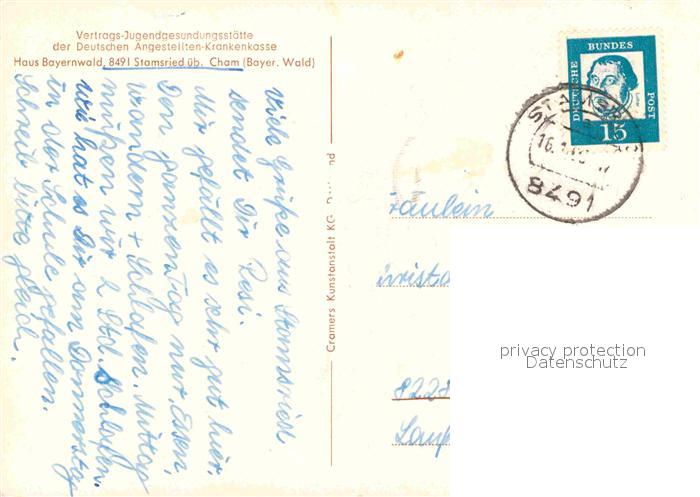 Vertrags-Jugendgesundungsstätte
der Deutschen Angestellten-Krankenkasse
Haus Bayernwald, 8491 Stamsried üb. Cham (Bayer. Wald)
Viele Grüße aus Stamsried
sendet Dir Resi.
Mir gefällt es sehr gut hier.
Den ganzen Tag nur, Essen,
wandern + Schlafen. Mittag
müßen wir 2 Std. Schlafen.
Wie hat es Dir am Donnerstag
in der Schule gefallen.
Schreib bitte gleich.
Cramers Kunstanstalt KG
DEUTSCHE BUNDES POST
15
8491
räulein
privacy protection
Datenschutz
8228